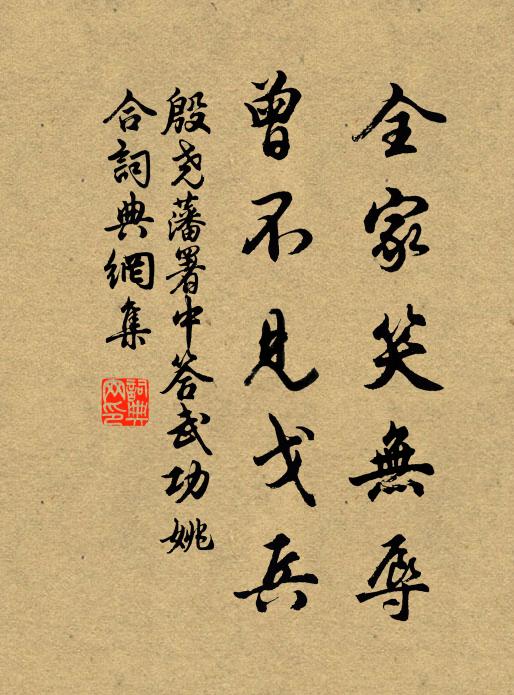 全家笑無辱
曾不見戈兵
殷尧藩署中答武功姚
合詞典網集
詞典
网印